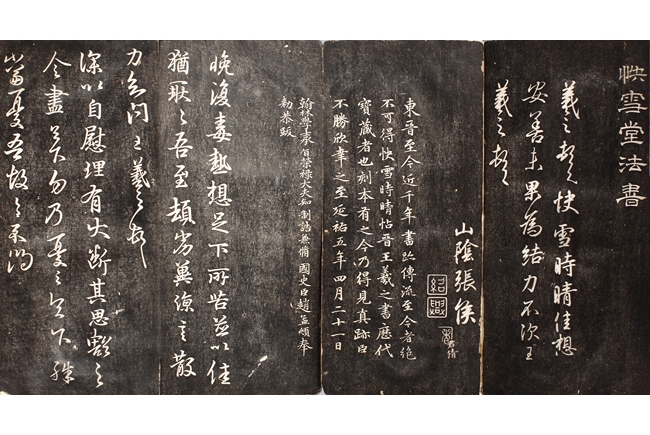 快雪堂法書
羲之頓首快雪時晴佳想
安善未果為結力不次王
羲之頓首
山陰張侯
紹興
君倩
東晉至今近千年書跡傳流至今者絕
不可得快雪時晴帖晉王羲之書歷代
寶藏者也刻本有之今乃得見真跡臣
不勝欣幸之至延祐五年四月二十一日
翰林學士承旨榮祿大夫知 制誥兼脩 國史臣趙孟頫奉
勅恭跋
晚復毒熱想足下所苦並以佳
猶耿耿吾至頓劣冀涼言散
力知問王羲之頓首
深以自慰理有大斷其思豁之
令盡足下勿乃憂之足下殊
當憂吾故具示問